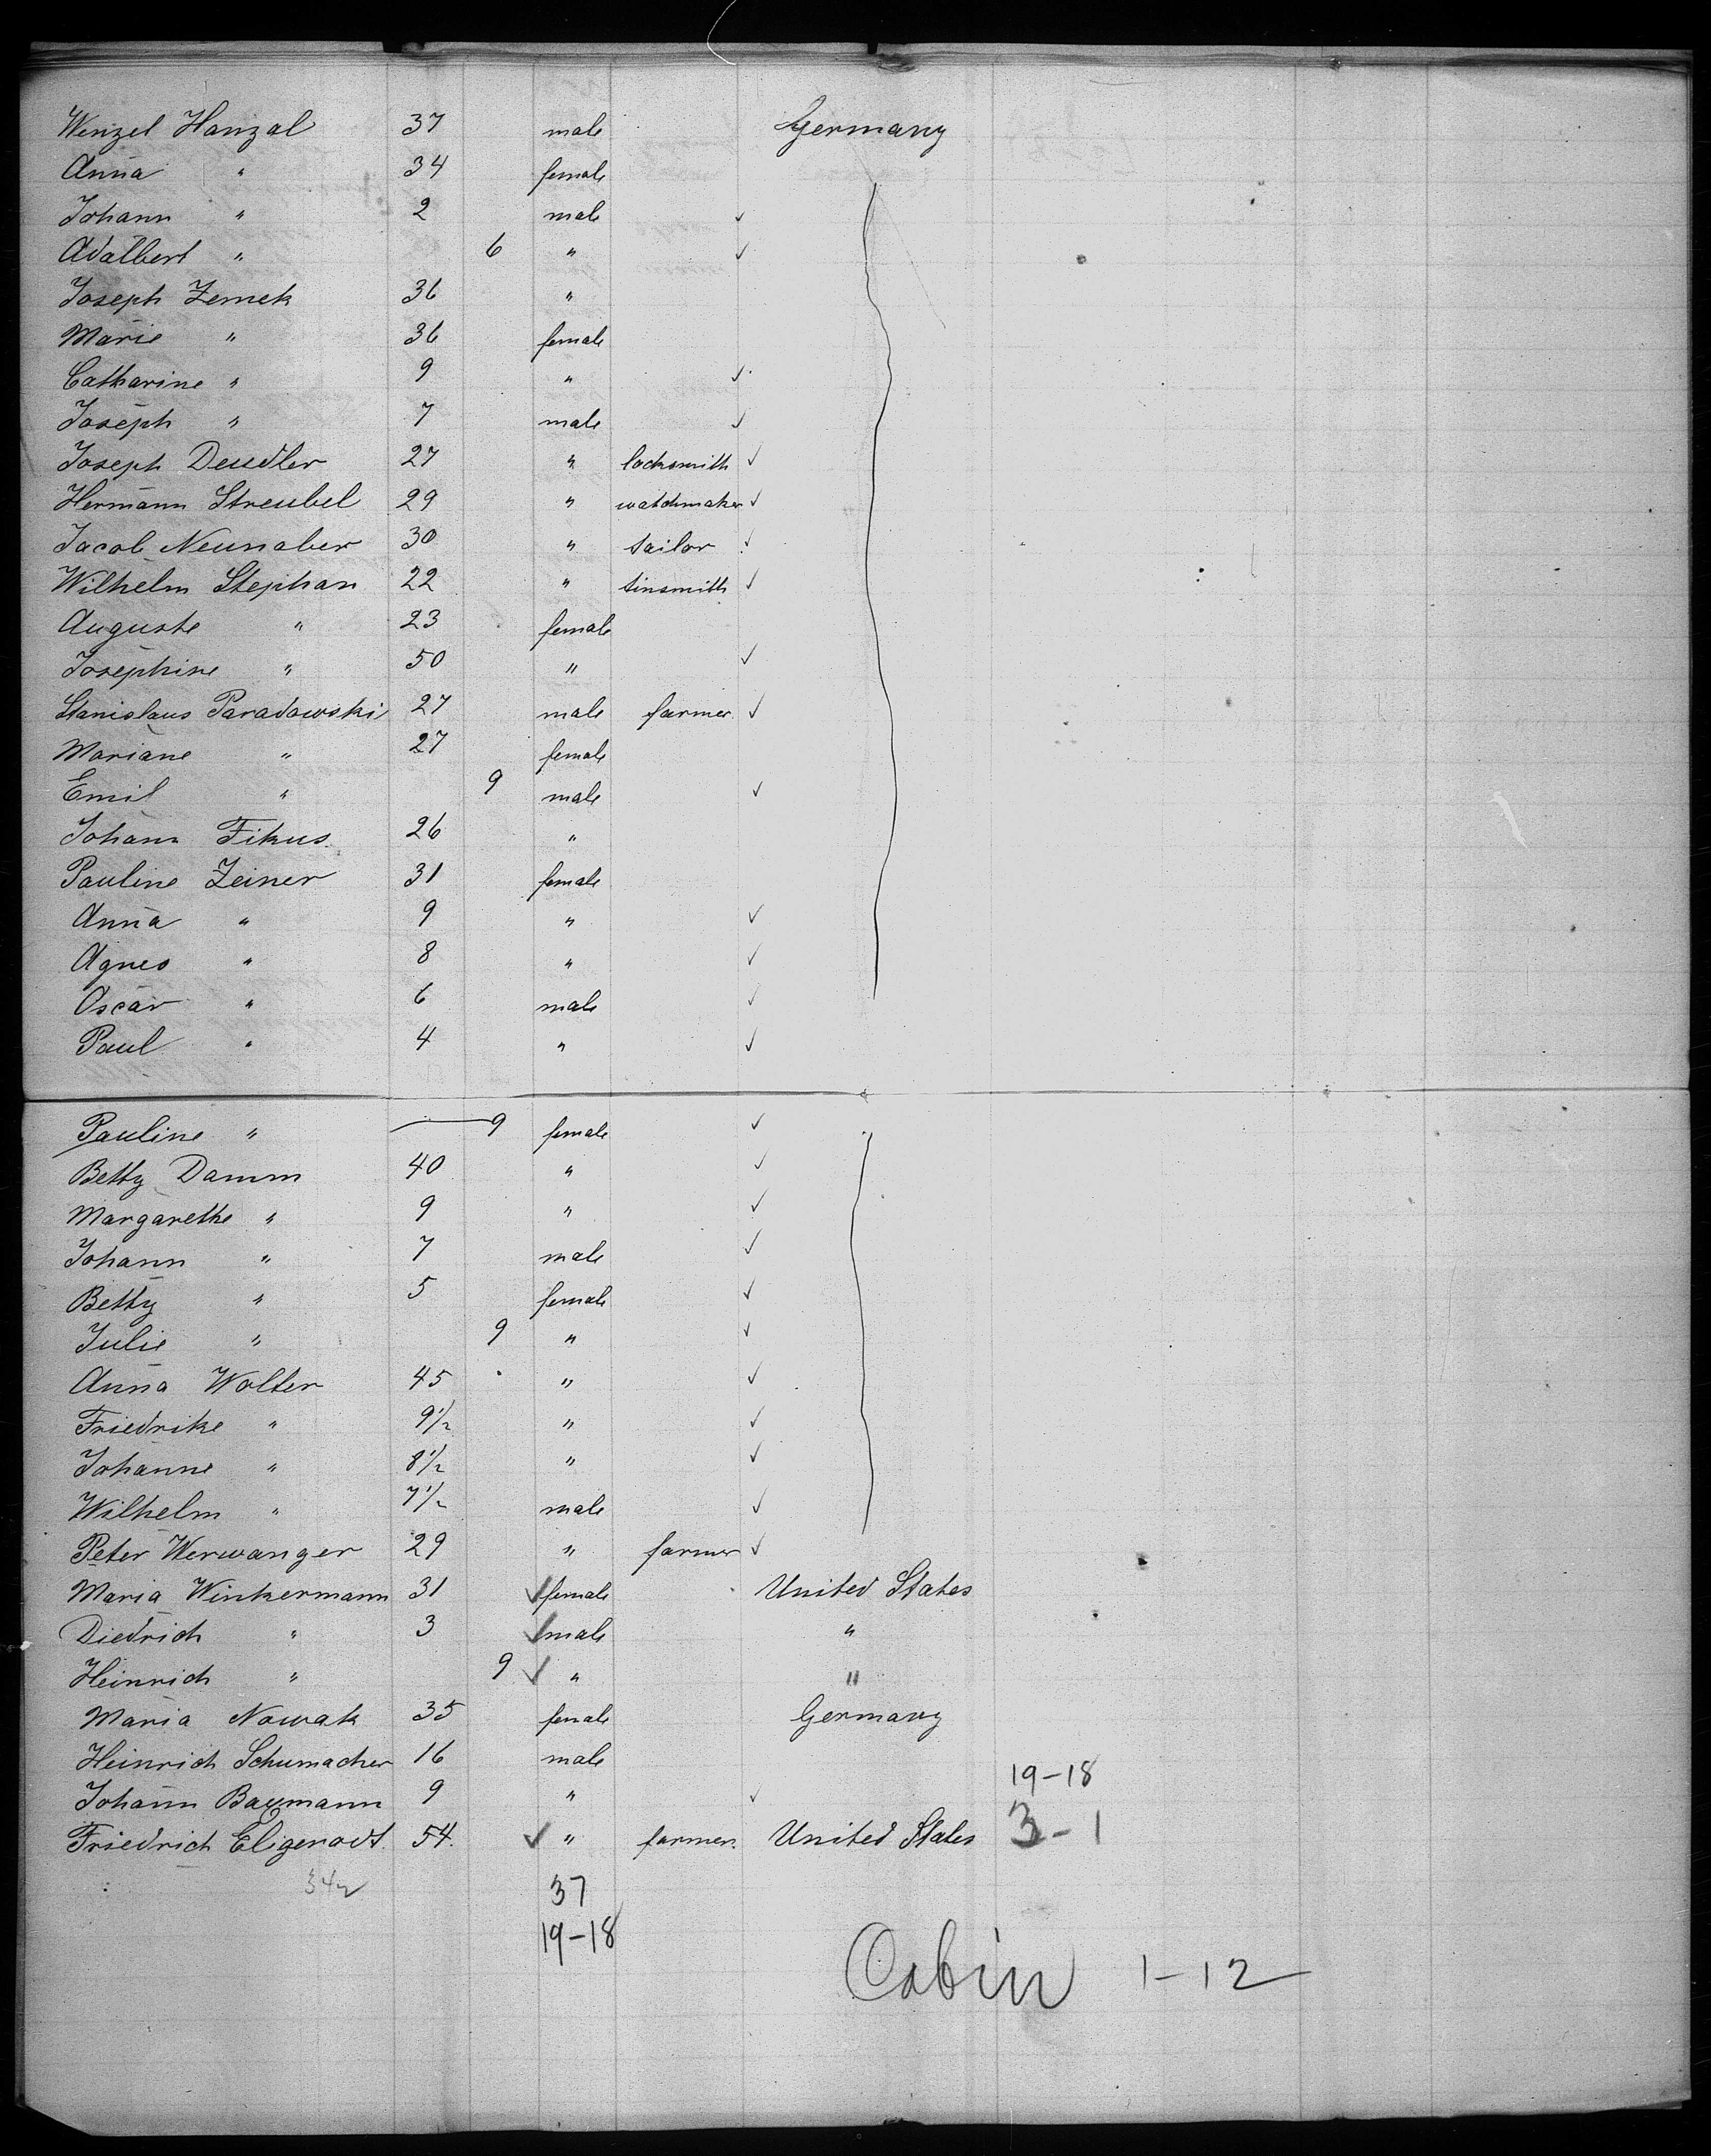 Wenzel Hanzal 37 male Germany
Anna " 34 female
Johann " 2 male ✓
Adalbert " 6 " ✓
Joseph Zemek 36 "
Marie " 36 female
Catharine " 9 " ✓
Joseph " 7 male ✓
Joseph Deudler 27 " locksmith ✓
Hermann Streubel 29 " watchmaker ✓
Jacob Neunaber 30 " tailor ✓
Wilhelm Stephan 22 " tinsmith ✓
Auguste " 23 female
Josephine " 50 " ✓
Stanislaus Paradowski 27 male farmer ✓
Mariane " 27 female
Emil " 9 male ✓
Johann Fikus 26 "
Pauline Zeiner 31 female
Anna " 9 " ✓
Agnes " 8 " ✓
Oscar " 6 male ✓
Paul " 4 " ✓
Pauline " 9 female ✓
Betty Damm 40 " ✓
Margarethe " 9 " ✓
Johann " 7 male ✓
Betty " 5 female ✓
Julie " 9 " ✓
Anna Wolter 45 " ✓
Friedrike " 9 1/2 " ✓
Johanne " 8 1/2 " ✓
Wilhelm " 7 1/2 male ✓
Peter Werwanger 29 " farmer ✓
Maria Winkermann 31 ✓ female United States
Diedrich " 3 ✓ male "
Heinrich " 9 ✓ " "
Maria Nowak 35 female Germany
Heinrich Schumacher 16 male
19-18
Johann Baumann 9 " ✓
Friedrich Eligenodt 54. ✓ " farmer. United States 3-1
37
19-18
Cabin 1-12